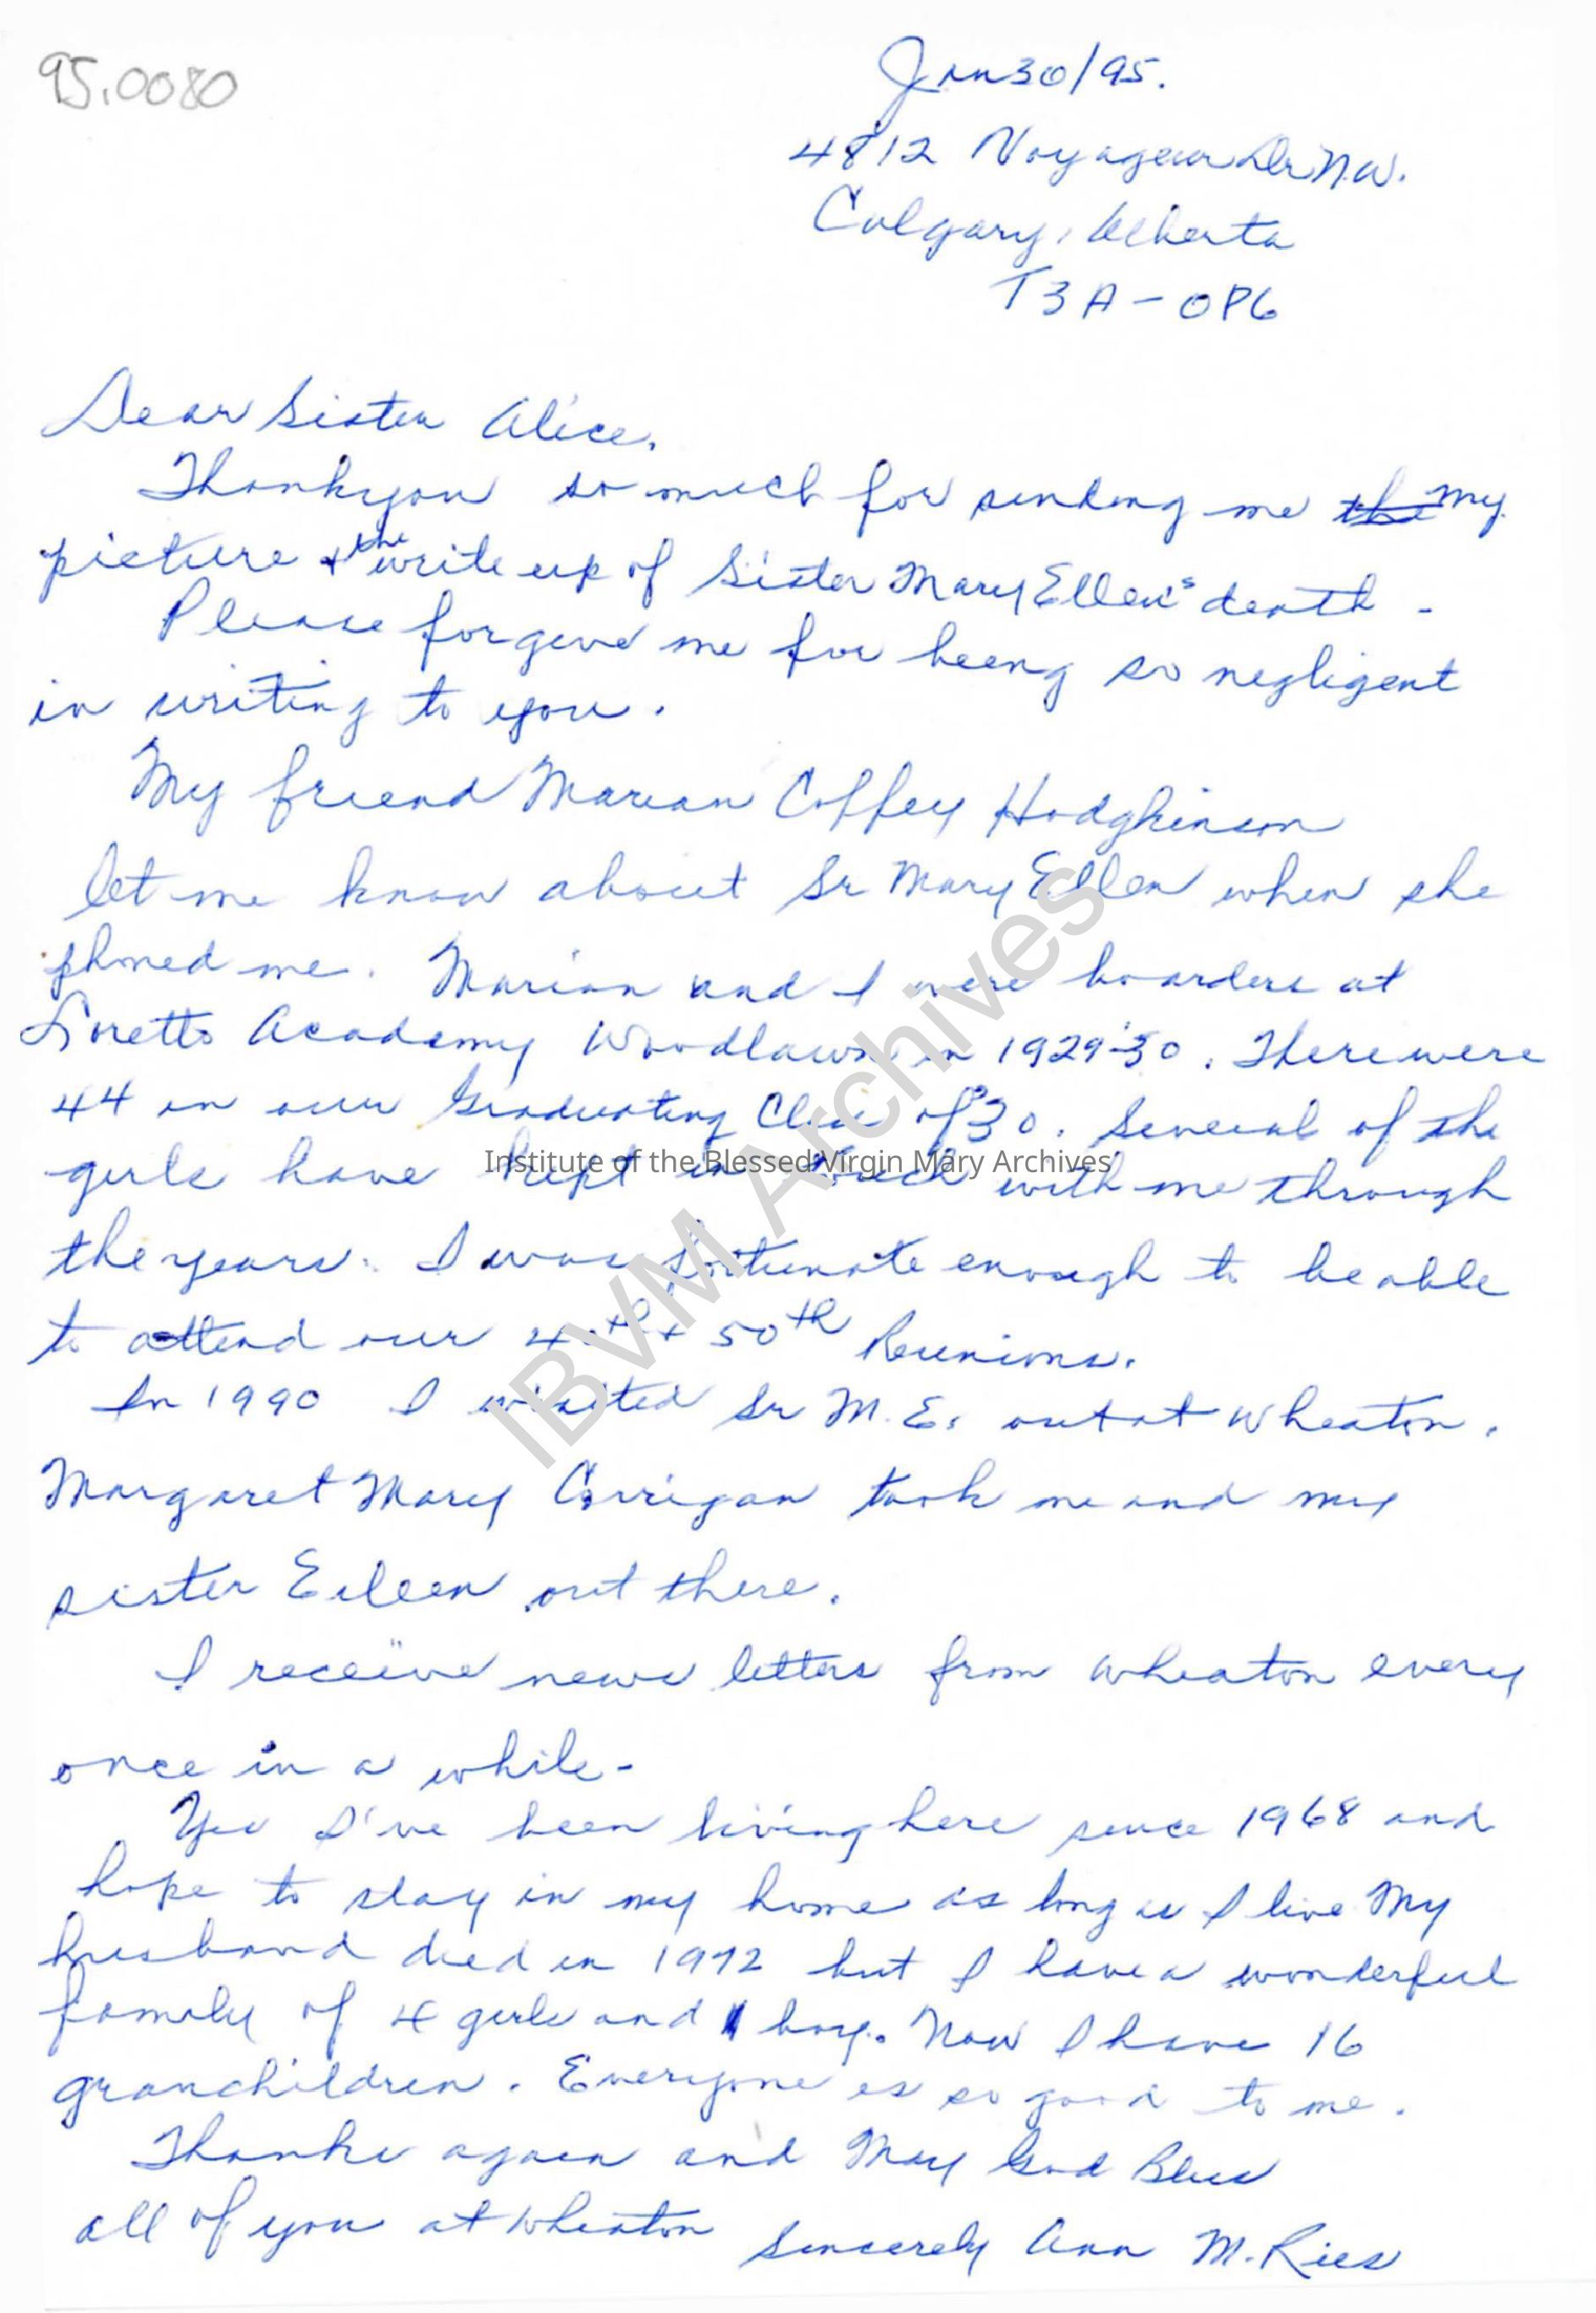 95.0080
Jan 30/95.
4812 Voyageur Dr N.W.
Calgary, Alberta
T3A-0P6
Dear Sister Alice,
Thankyou so much for sending me the my
picture + the write up of Sister Mary Ellen's death -
Please forgive me for being so negligent
in writing to you.
My friend Marian Coffey Hodgkinson
let me know about Sr Mary Ellen when she
phoned me. Marian and I were boarders at
Loretto Academy Woodlawn in 1929-30. There were
44 in our Graduating Class of 30. Several of the
girls have kept in touch with me through
the years. I was fortunate enough to be able
to attend our 40th + 50th Reunions.
In 1990 I visited Sr M.E. out at Wheaton.
Margaret Mary Corrigan took me and my
sister Eileen out there.
I receive news letters from Wheaton every
once in a while-
Yes I've been living here since 1968 and
hope to stay in my home as long as I live My
husband died in 1972 but I have a wonderful
family of 4 girls and 1 boy. Now I have 16
granchildren. Everyone is so good to me.
Thanks again and May God Bless
all of you at Wheaton Sincerely Ann M. Ries
Institute of the Blessed Virgin Mary Archives
IBVM Archives